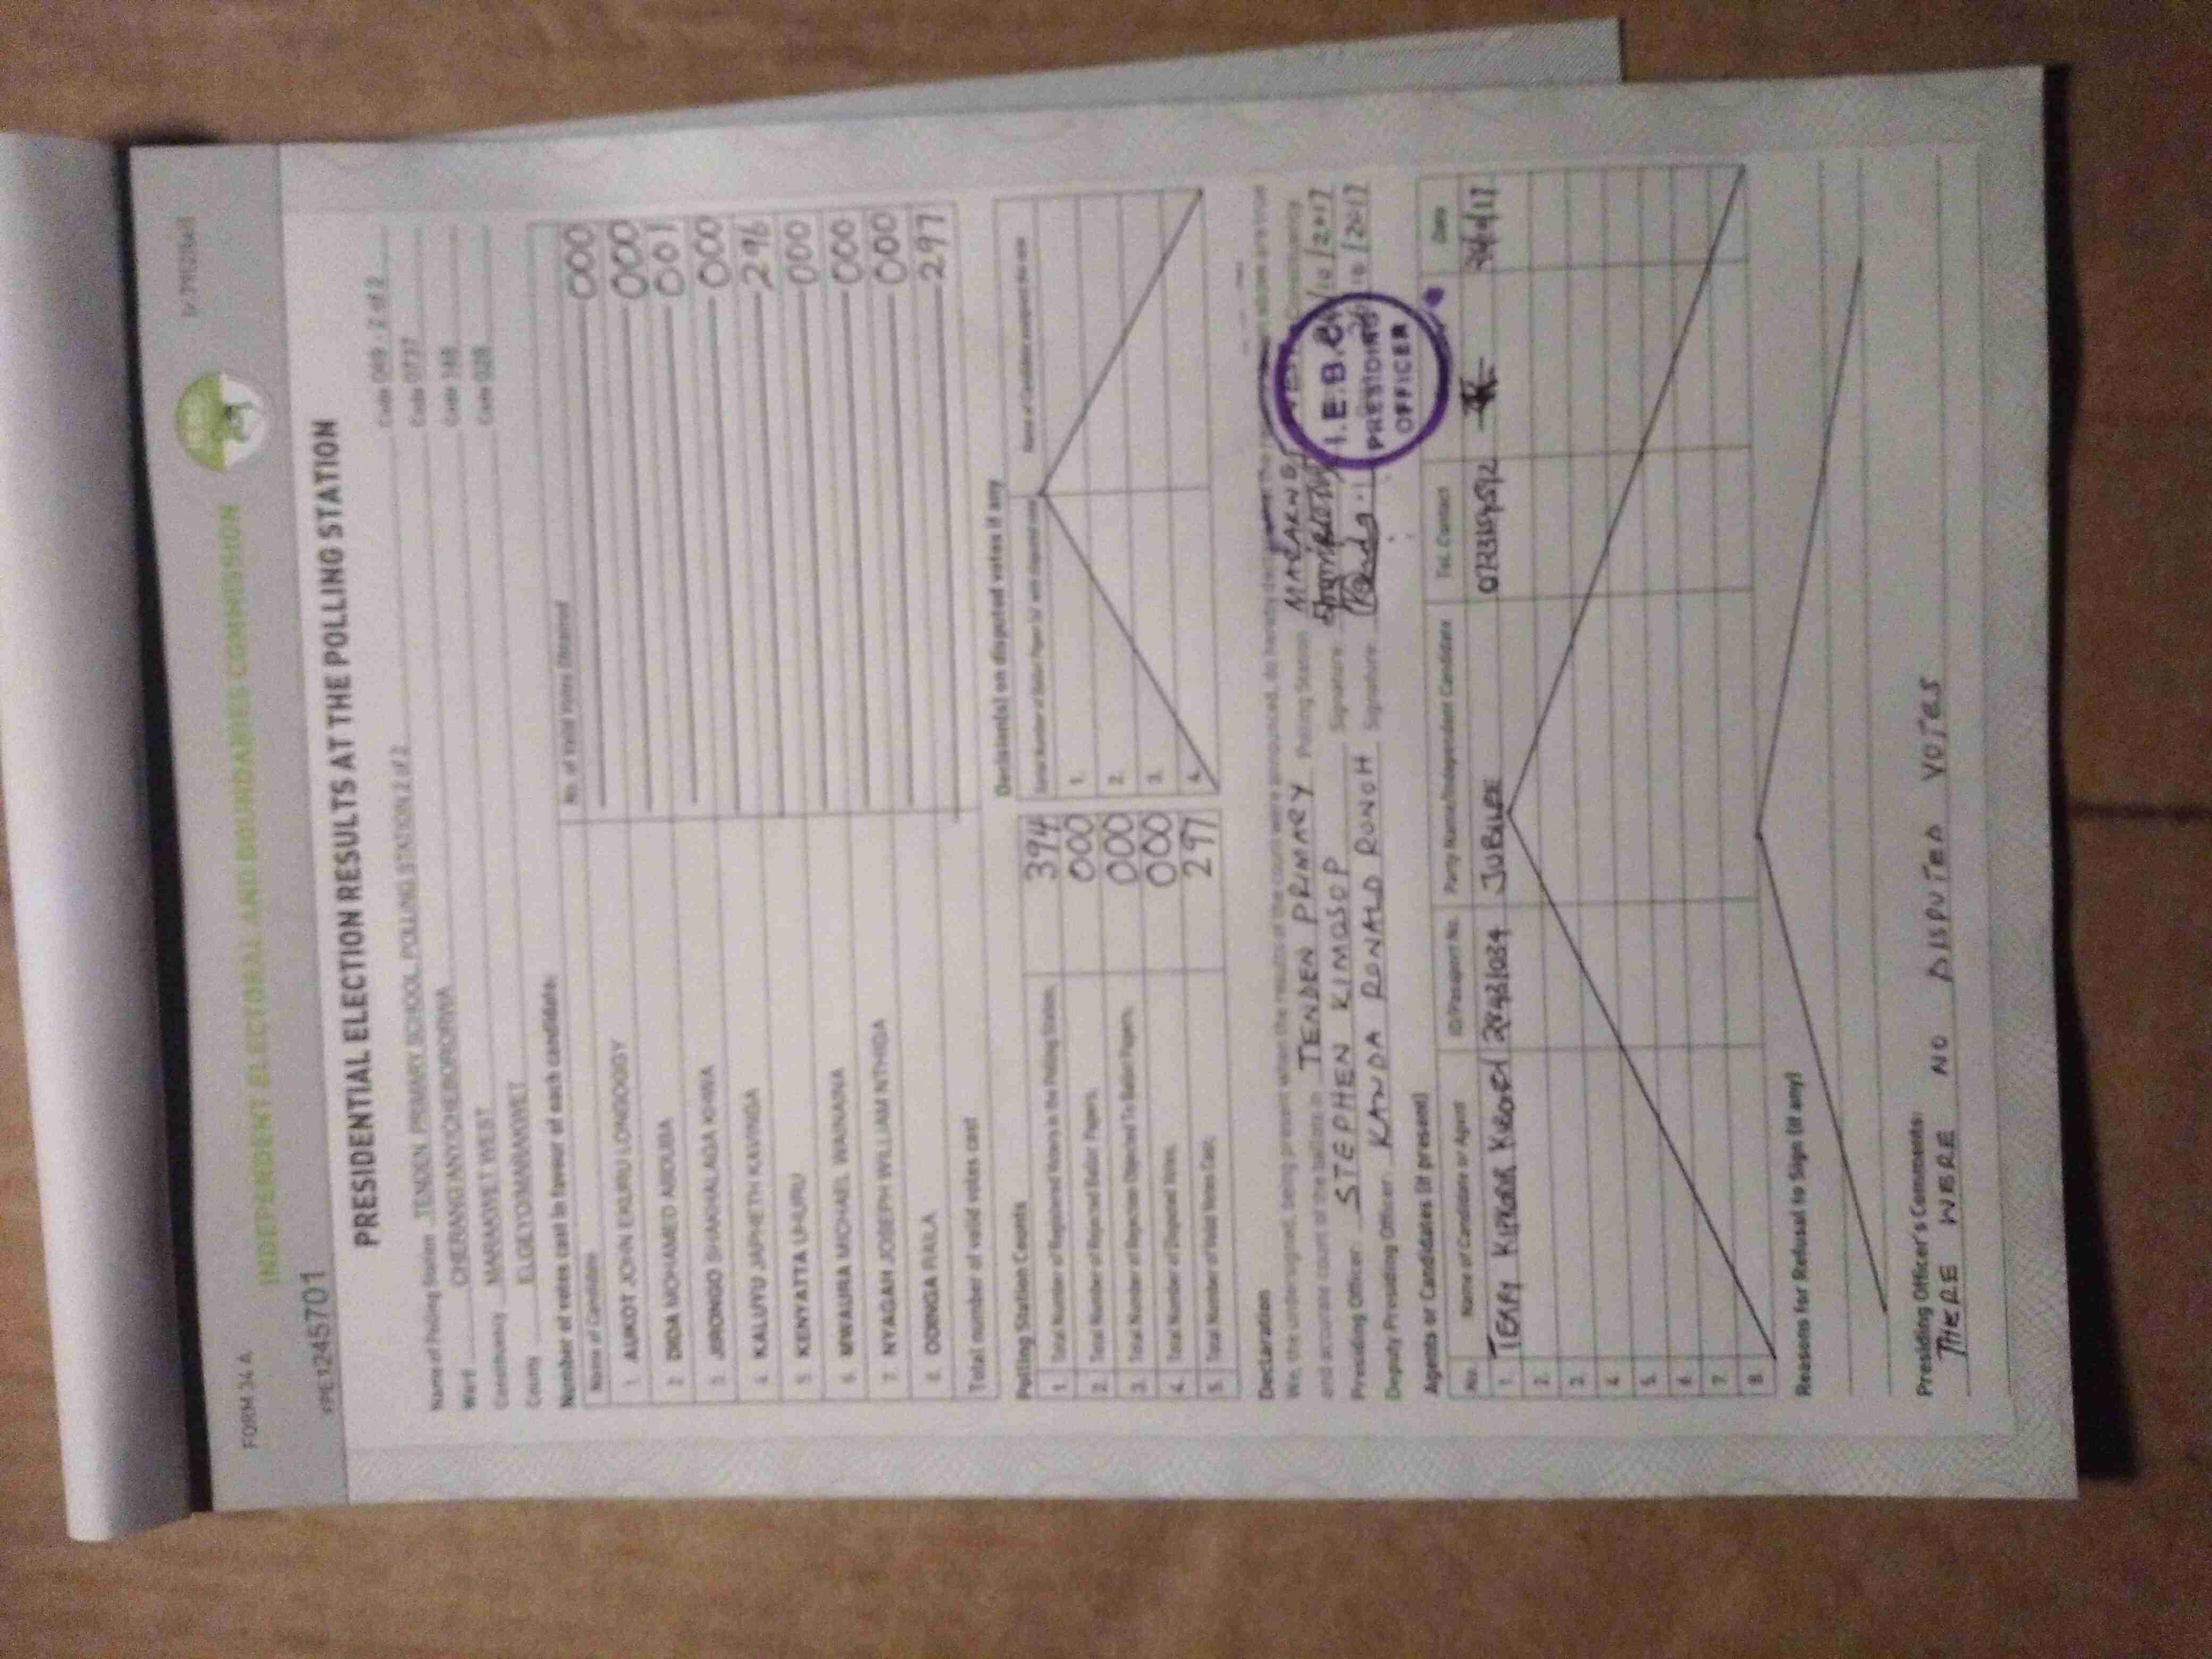 FORM 34 A
INDEPENDENT ELECTORAL AND BOUNDARIES COMMISSION
PRESIDENTIAL ELECTION RESULTS AT THE POLLING STATION
Name of Polling Station TENDEN PRIMARY SCHOOL POLLING STATION 2 of 2 Code 099 - 2 of 2
Ward CHERANG'ANY/CHEBORORWA Code 0737
Constituency MARAKWET WEST Code 148
County ELGEYO/MARAKWET Code 028
Number of votes cast in favour of each candidate:
Name of Candidate No. of Valid Votes Obtained
1. AUKOT JOHN EKURU LONGOGGY 000
2. DIDA MOHAMED ABDUBA 000
3. JIRONGO SHAKHALAGA KHWA 001
4. KALUYU JAPHETH KAVINGA 000
5. KENYATTA UHURU 296
6. MWAURA MICHAEL WAINAINA 000
7. NYAGAH JOSEPH WILLIAM NTHIGA 000
8. ODINGA RAILA 000
Total number of valid votes cast 297
Polling Station Counts
1. Total Number of Registered Voters in the Polling Station 394
2. Total Number of Rejected Ballot Papers 000
3. Total Number of Rejection Objected To Ballot Papers 000
4. Total Number of Disputed Votes 000
5. Total Number of Valid Votes Cast 297
Decision(s) on disputed votes if any
1.
2.
3.
4.
Declaration
We, the undersigned, being present when the results of the count were announced, do hereby declare that the above are true
and accurate count of the ballots in TENDEN PRIMARY Polling Station Constituency
Presiding Officer: STEPHEN KIMOSOP Signature /10/2017
Deputy Presiding Officer: KANDA RONALD RONOH Signature 10/2017
I.E.B.C
PRESIDING
OFFICER
Agents or Candidates (if present)
No. Name of Candidate or Agent ID/Passport No. Party Name/Independent Candidate Tel. Contact Date
1. JUBILEE
2.
3.
4.
5.
6.
7.
8.
Reasons for Refusal to Sign (if any)
Presiding Officer's Comments:
THERE WERE NO DISPUTED VOTES